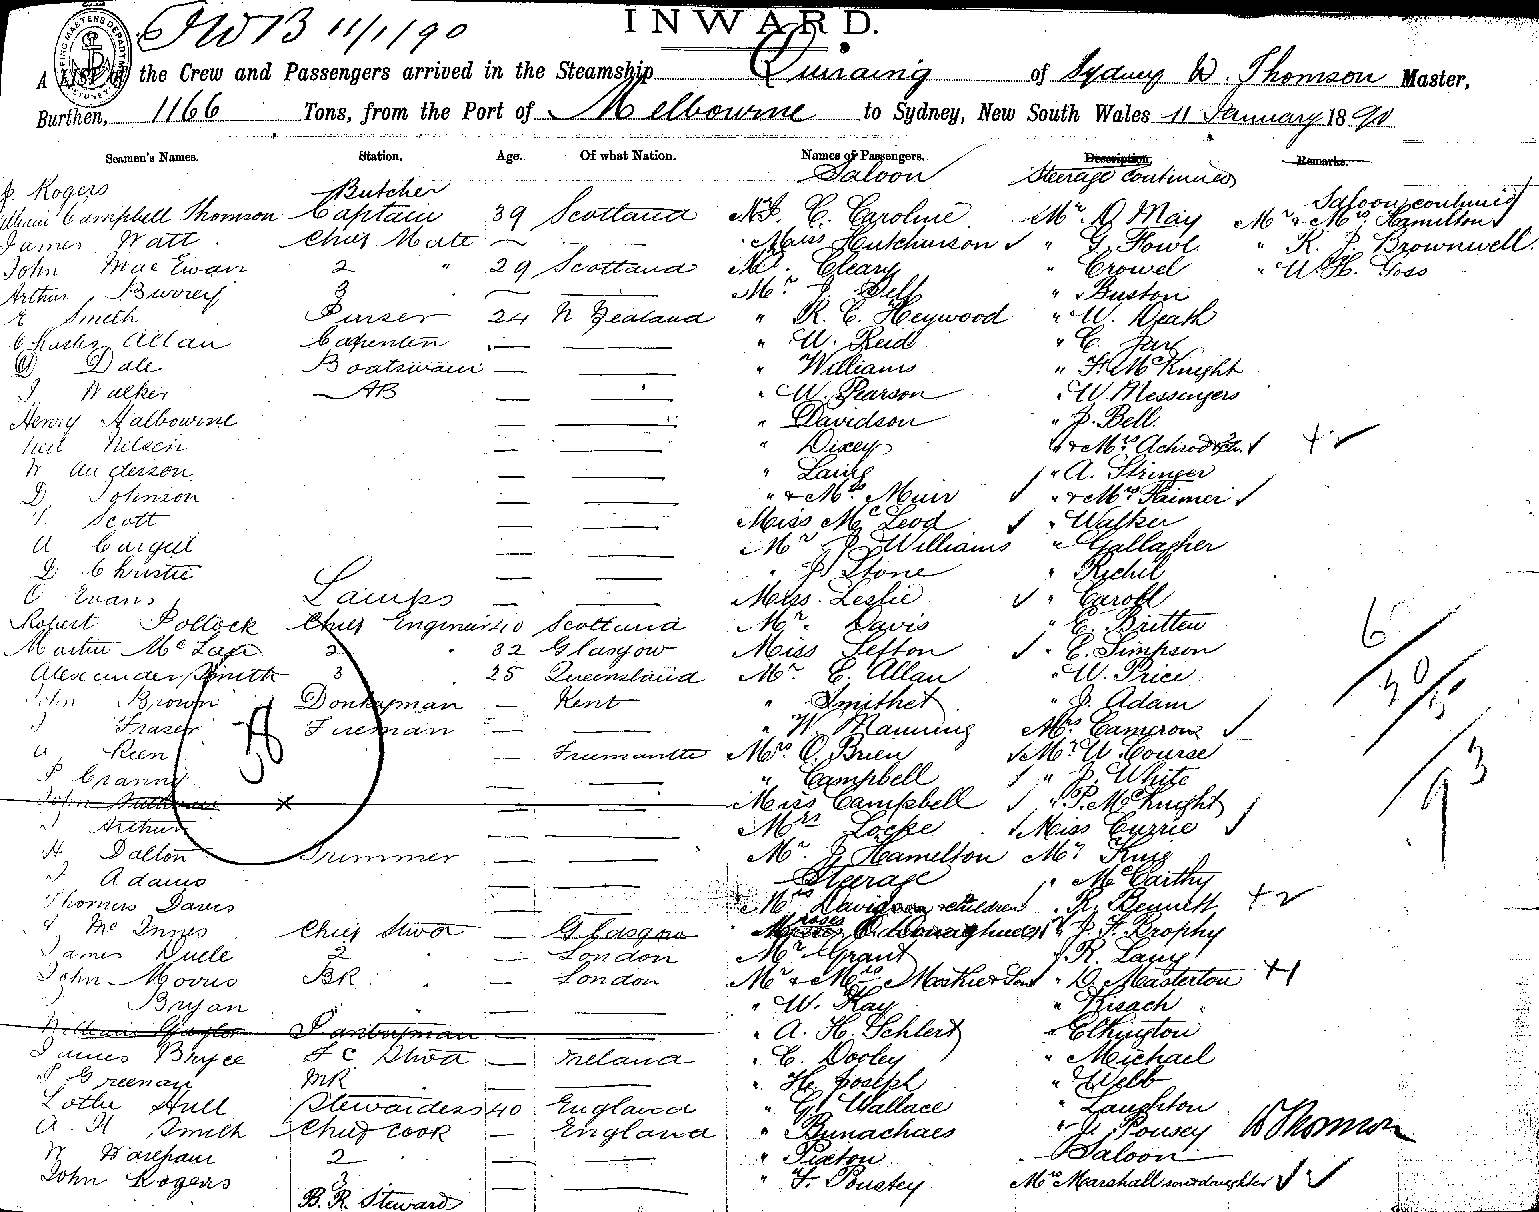 JWB 11/1/90
INWARD.
A LIST of the Crew and Passengers arrived in the Steamship Quiraing of Sydney W. Thomson Master,
Burthen, 1166 Tons, from the Port of Melbourne to Sydney, New South Wales 11 January 1890
Seamen's Names. Station. Age. Of what Nation. Names of Passengers. Description. Remarks.
J. Rogers Butcher Saloon Steerage continued Saloon continued
William Campbell Thomson Captain 39 Scotland C. Caroline Mr. D May Mr & Mrs Hamilton
James Watt Chief Mate — Miss Hutchinson " G. Fowl " R. J. Brownwell
John MacEwan 2 " 29 Scotland Cleary " Crowel " W. H. Goss
Arthur 3 " — Mr. J. Bell " Buston
Smith Purser 24 N Zealand " R. C. Heywood " W. Death
Allan Carpenter — — " W. Reid " C. Jax
Dale Boatswain — — " Williams " F. McKnight
Walker AB — — " W. Pearson " W Messengers
Henry — — " Davidson " J. Bell
Neil Nilsen — — " Dixey " & Mrs
W Anderson — — " Laing " A. Stringer
D Johnson — — " & Mrs Muir " & Mrs
Scott — — Miss McLeod " Walker
Cargill — — Mr J. Williams " Gallagher
D Christie — — " J. Stone "
Evans Lamps — — Miss Leslie " Caroll
Robert Pollock Chief Engineer 40 Scotland Mr. Davis " E. Britten
2 " 32 Glasgow Miss Sefton " C. Simpson
Alexander Smith 3 " 25 Queensland Mr. E. Allan " W. Price
John Brown Donkeyman — Kent " Smithet " J. Adam
Fraser Fireman — — " W. Manning Mrs. Cameron
Keen — Freemantle Mrs O'Brien Mr. W Course
P Cranny — — " Campbell " J. White
John — — Miss Campbell " P. McKnight
Arthur — — Mrs Locke Miss Currie
H Dalton Trimmer — — Mr. J. Hamelton Mr. King
J Adams — — Steerage " McCarthy
Thomas Davis — — Mrs Davidson & children " R. Bennett
McInnes Chief Stwd — Glasgow " J. F. Brophy
James 2 " — London Mr Grant " R. Lang
John Morris BR — London Mr & Mrs & Son " D. Masterton
Bryan — — " W. Kay " Kisach
William Pantryman — — " A. H. Schlert " Elkington
James Bryce F.C. Stwd — Ireland " C. Dooley " Michael
P Greenan MR — — " H. Joseph " Webb
Hull Stewardess 40 England " G. Wallace " Laughton
A. H Smith Chief Cook — England " " J. Pousey
W Wareham 2 — — " Pixton Saloon
John Rogers 3 — — " F. Poustey Mrs Marshall son & daughter
B. R. Steward
58
6
30/
93
W Thomson